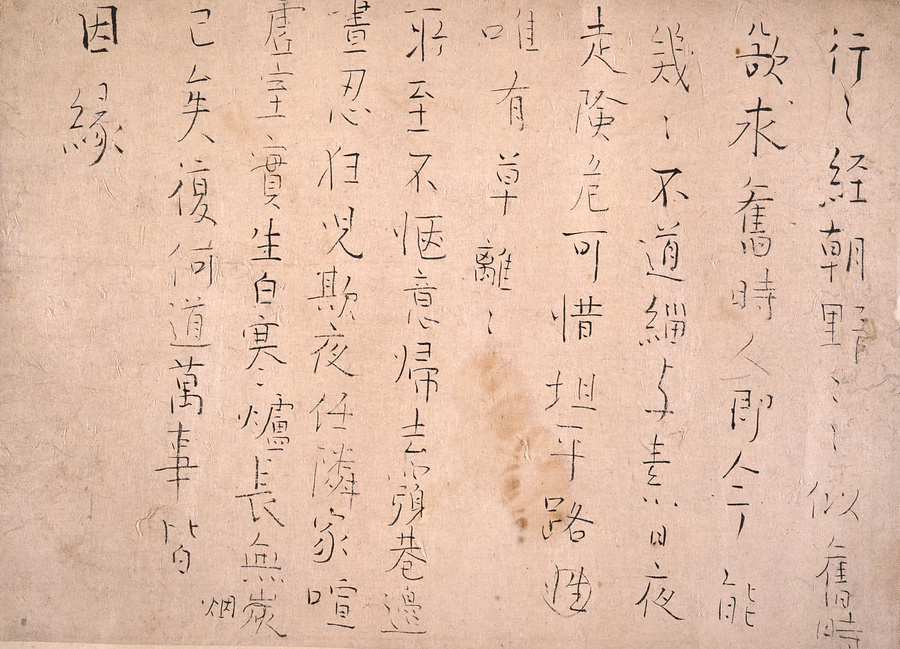 行〻経朝野〻〻似舊時
欲求舊時人即今能
幾〻不道緇与素日夜
走険危可惜坦平路
唯有草離〻
所至不愜意帰去頽巷邊
晝忍狂児欺夜任隣家喧
虚室實生白寒〻爐長無炭
烟
已矣復何道萬事皆
因縁